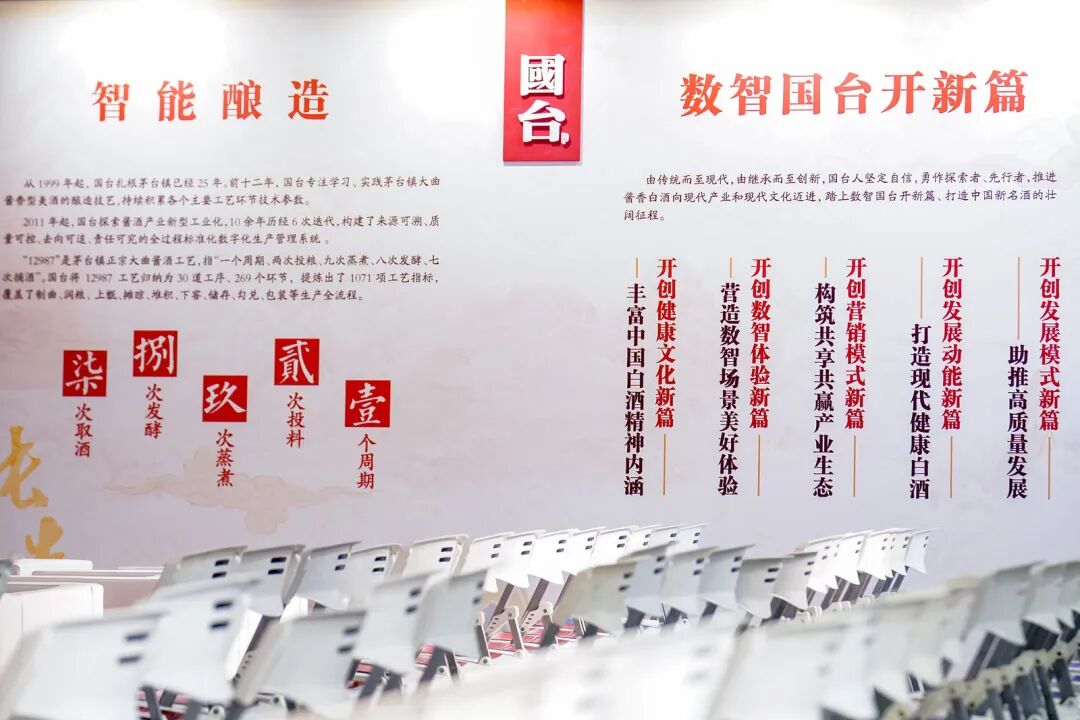 智能酿造
从1999年起，国台扎根茅台镇已经25年。前十二年，国台专注学习、实践茅台镇大曲
酱香型美酒的酿造技艺，持续积累各个主要工艺环节技术参数。
2011年起，国台探索酱酒产业新型工业化，10余年历经6次迭代，构建了来源可溯、质
量可控、去向可追、责任可究的全过程标准化数字化生产管理系统。
"12987"是茅台镇正宗大曲酱酒工艺，指"一个周期、两次投粮、九次蒸煮、八次发酵、七
次摘酒"。国台将12987工艺归纳为30道工序、269个环节，提炼出了1071项工艺指标，
覆盖了制曲、润粮、上甑、摊晾、堆积、下窖、储存、勾兑、包装等生产全流程。
壹个周期
贰次投料
玖次蒸煮
捌次发酵
柒次取酒
長
國台
数智国台开新篇
由传统而至现代，由继承而至创新，国台人坚定自信，勇作探索者、先行者，推进
酱香白酒向现代产业和现代文化迈进，踏上数智国台开新篇、打造中国新名酒的壮
阔征程。
开创发展模式新篇
助推高质量发展
开创发展动能新篇
打造现代健康白酒
开创营销模式新篇
构筑共享共赢产业生态
开创数智体验新篇
营造数智场景美好体验
开创健康文化新篇
丰富中国白酒精神内涵